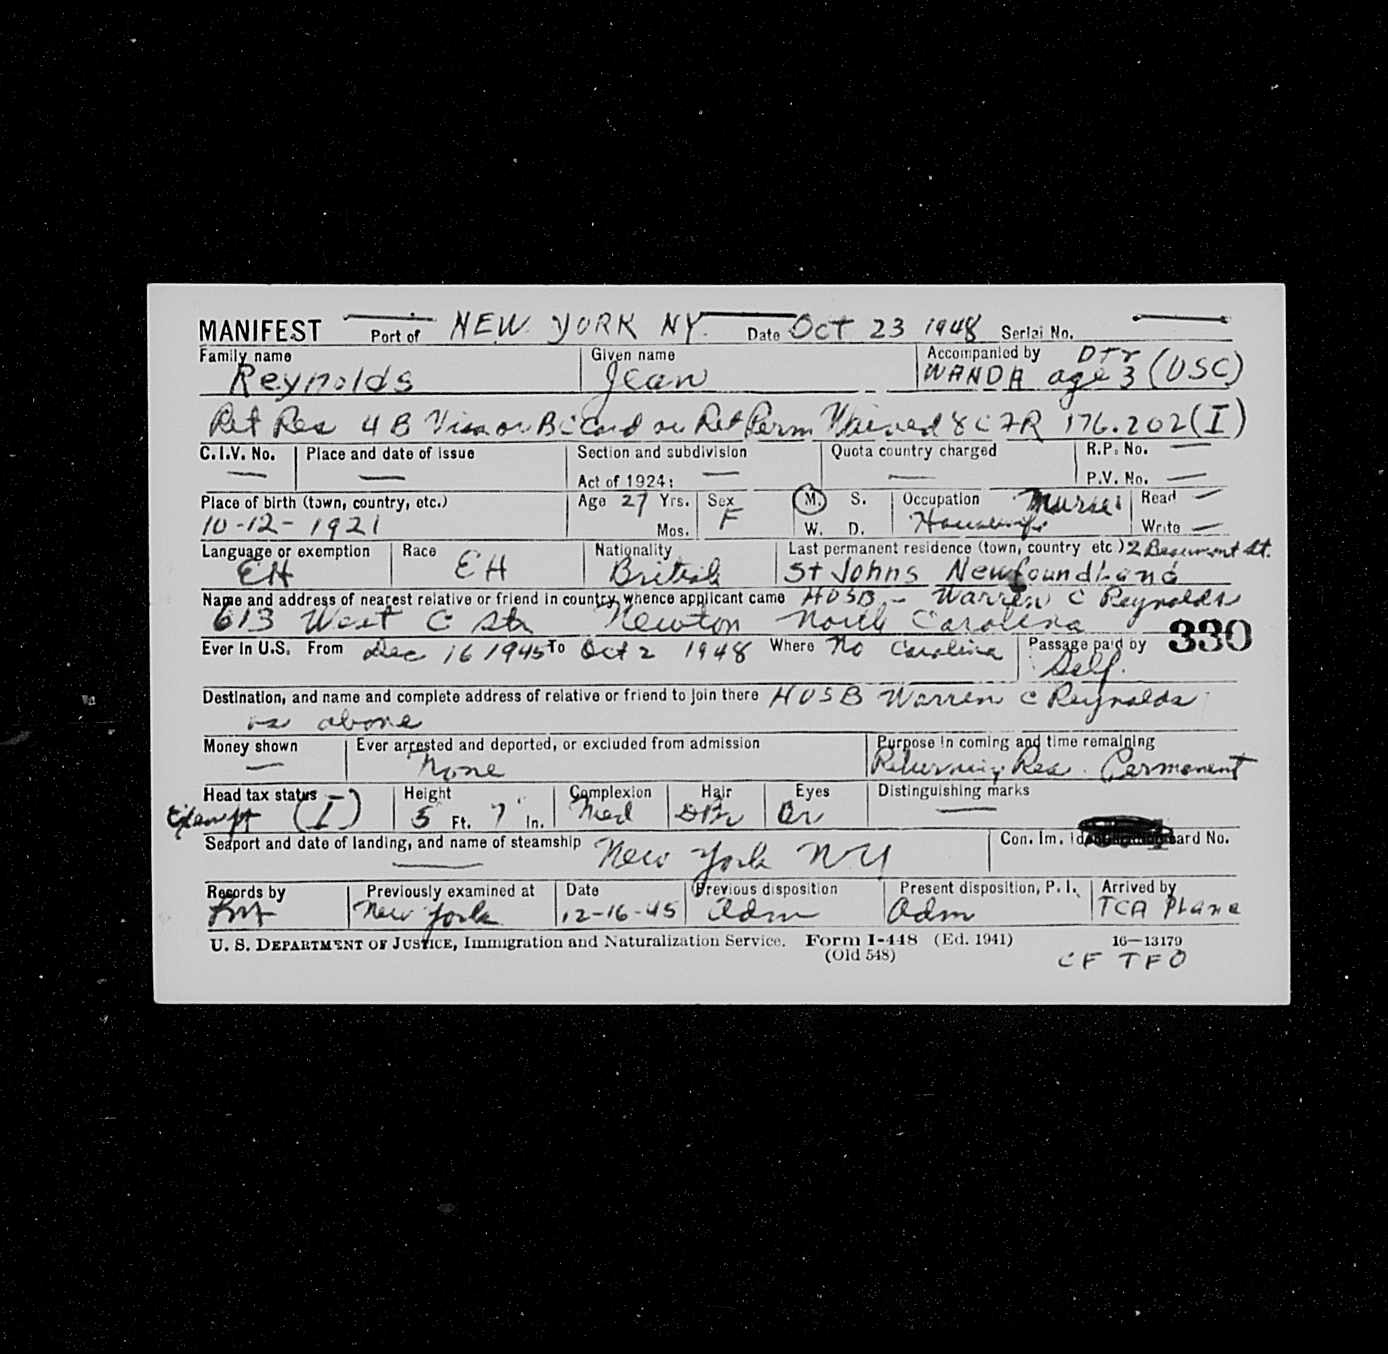 MANIFEST Port of NEW YORK NY. Date Oct 23 1948 Serial No.
Family name Given name Accompanied by Dtr
Reynolds Jean WANDA age 3 (USC)
Ret Res 4B Visa or BC Card or Ret Perm Waived 8 CFR 176.202 (I)
C.I.V. No. Place and date of issue Section and subdivision Quota country charged R.P. No.
Act of 1924: P.V. No.
Place of birth (town, country, etc.) Age 27 Yrs. Sex M. S. Occupation Nurse Read
10-12-1921 Mos. F W. D. Housewife Write
Language or exemption Race Nationality Last permanent residence (town, country etc.) 2 Beaumont St.
EH EH British St Johns Newfoundland
Name and address of nearest relative or friend in country whence applicant came HUSB - Warren C Reynolds
613 West C Str Newton North Carolina
330
Ever in U.S. From Dec 16 1945 To Oct 2 1948 Where No Carolina Passage paid by
Self.
Destination, and name and complete address of relative or friend to join there HUSB Warren C Reynolds
as above
Money shown Ever arrested and deported, or excluded from admission Purpose in coming and time remaining
None Returning Res. Permanent
Head tax status Height Complexion Hair Eyes Distinguishing marks
Exempt (I) 5 Ft. 7 In. Med DBr Br
Seaport and date of landing, and name of steamship New York NY Con. Im. Card No.
Records by Previously examined at Date Previous disposition Present disposition, P. I. Arrived by
New York 12-16-45 Adm Adm TCA Plane
U. S. DEPARTMENT OF JUSTICE, Immigration and Naturalization Service. Form I-448 (Ed. 1941) 16—13179
(Old 548) CF TFO